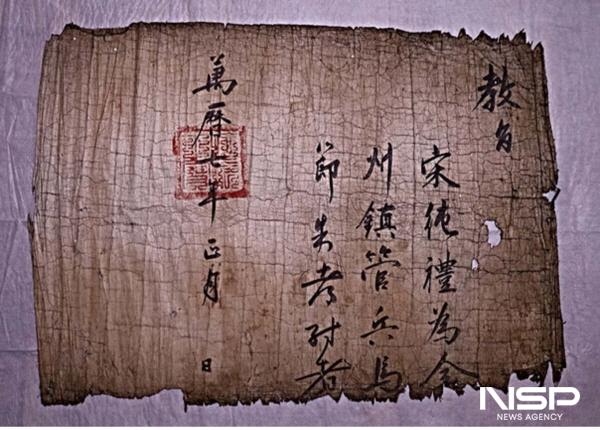 教旨
宋純禮為全
州鎮管兵馬
節制都尉者
萬曆七年正月 日
NSP
NEWS AGENCY